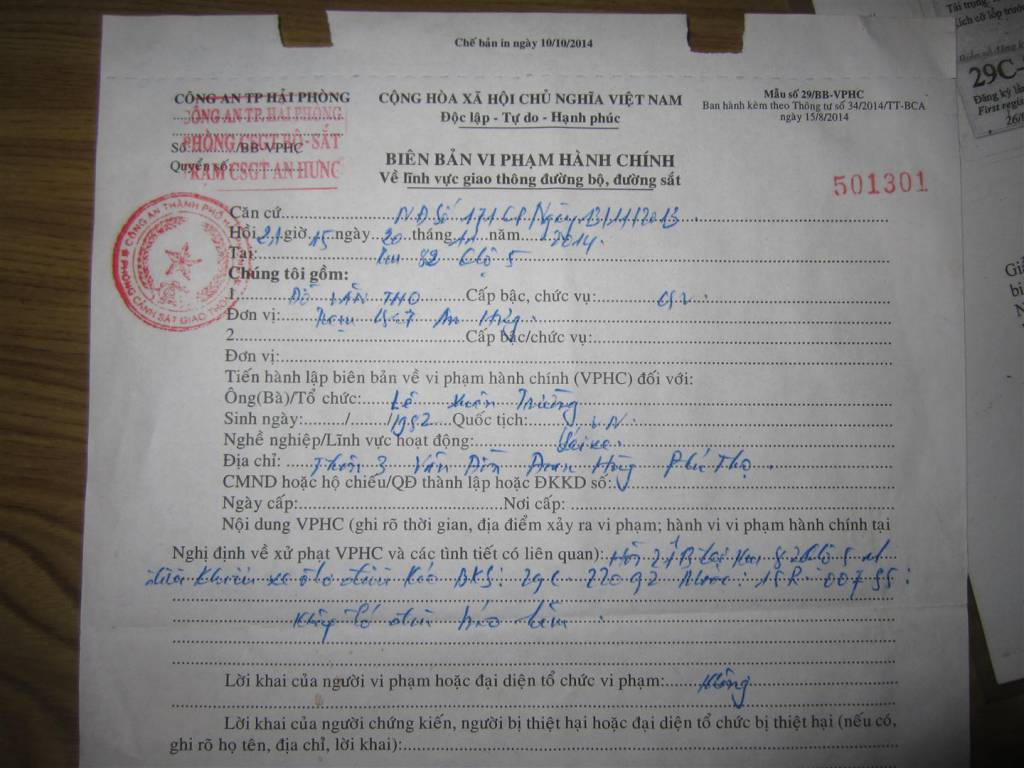 Chế bản in ngày 10/10/2014
CÔNG AN TP HẢI PHÒNG
CÔNG AN TP. HẢI PHÒNG
PHÒNG CSGT ĐB-SẮT
TRẠM CSGT AN HƯNG
Số............/BB-VPHC
Quyển số
CỘNG HÒA XÃ HỘI CHỦ NGHĨA VIỆT NAM
Độc lập - Tự do - Hạnh phúc
Mẫu số 29/BB-VPHC
Ban hành kèm theo Thông tư số 34/2014/TT-BCA
ngày 15/8/2014
BIÊN BẢN VI PHẠM HÀNH CHÍNH
Về lĩnh vực giao thông đường bộ, đường sắt
501301
CÔNG AN THÀNH PHỐ
PHÒNG CẢNH SÁT GIAO THÔNG
Căn cứ NĐ Số 171 CP Ngày 13/11/2013
Hồi 21 giờ 15 ngày 20 tháng 11 năm 2014
Tại: Km 82 QLộ 5
Chúng tôi gồm:
1. ĐỖ VĂN THO Cấp bậc, chức vụ:
Đơn vị: Trạm CSGT An Hưng
2. Cấp bậc/chức vụ:
Đơn vị:
Tiến hành lập biên bản về vi phạm hành chính (VPHC) đối với:
Ông(Bà)/Tổ chức: Lê Xuân Trường
Sinh ngày: / /1982 Quốc tịch: VN
Nghề nghiệp/Lĩnh vực hoạt động: Lái xe
Địa chỉ: Thôn 3 Vân Đồn Đoan Hùng Phú Thọ
CMND hoặc hộ chiếu/QĐ thành lập hoặc ĐKKD số:
Ngày cấp: Nơi cấp:
Nội dung VPHC (ghi rõ thời gian, địa điểm xảy ra vi phạm; hành vi vi phạm hành chính tại
Nghị định về xử phạt VPHC và các tình tiết có liên quan): Hồi tại Km 82 QLộ 5
điều khiển xe ôtô đầu kéo BKS: 29C 22092 Moóc: 15R 00755
Không có đèn báo hãm
Lời khai của người vi phạm hoặc đại diện tổ chức vi phạm: Không
Lời khai của người chứng kiến, người bị thiệt hại hoặc đại diện tổ chức bị thiệt hại (nếu có,
ghi rõ họ tên, địa chỉ, lời khai):
Tải trọng
29C-
Đăng ký lần
First regis
26/